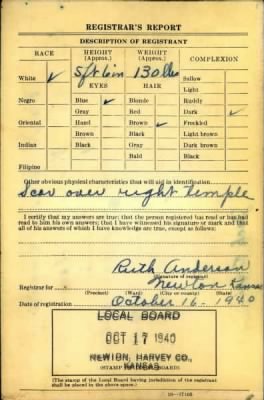 REGISTRAR'S REPORT
DESCRIPTION OF REGISTRANT
RACE HEIGHT (Approx.) WEIGHT (Approx.) COMPLEXION
White ✓ 5 ft 6 in 130 lbs Sallow
EYES HAIR Light
Negro Blue ✓ Blonde Ruddy
Gray Red Dark ✓
Oriental Hazel Brown ✓ Freckled
Brown Black Light brown
Indian Black Gray Dark brown
Bald Black
Filipino
Other obvious physical characteristics that will aid in identification
Scar over right temple
I certify that my answers are true; that the person registered has read or has had
read to him his own answers; that I have witnessed his signature or mark and that
all of his answers of which I have knowledge are true, except as follows:
Ruth Anderson
(Signature of registrar)
Registrar for Newton Kansas
(Precinct) (Ward) (City or county) (State)
Date of registration October 16 - 1940
LOCAL BOARD
OCT 17 1940
NEWTON, HARVEY CO.,
KANSAS
(STAMP OF LOCAL BOARD)
(The stamp of the Local Board having jurisdiction of the registrant
shall be placed in the above space.)